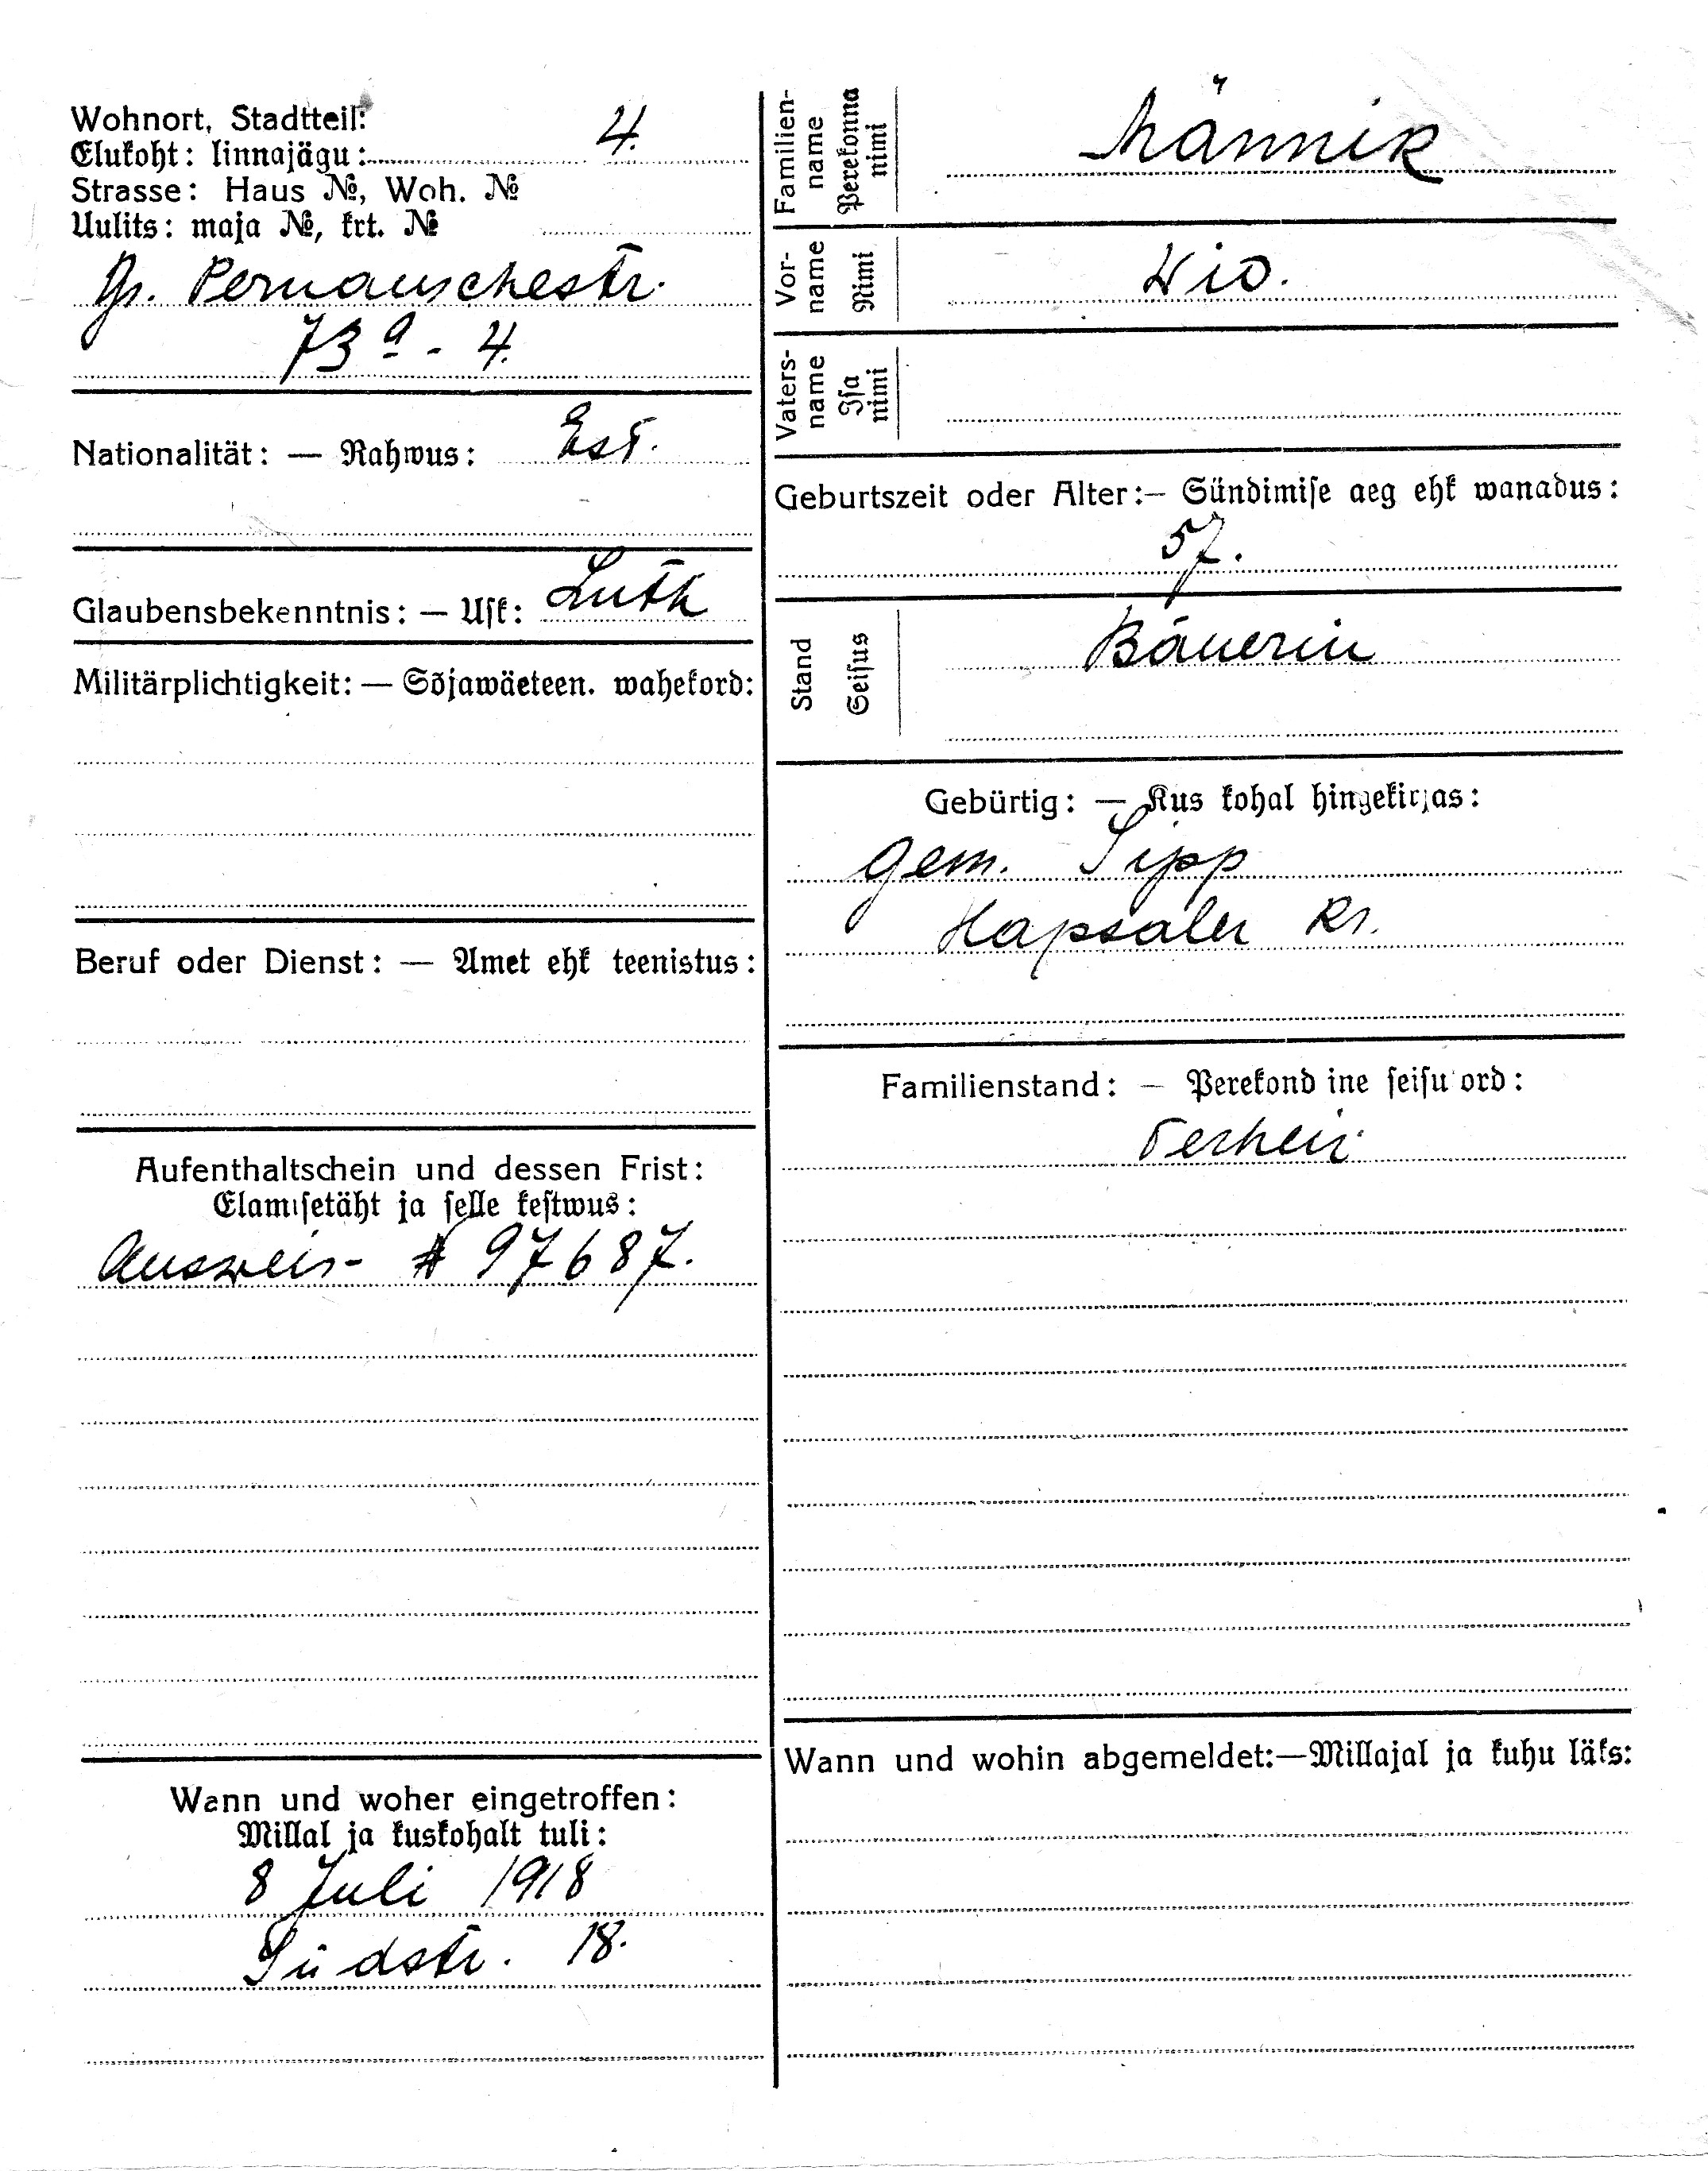 Wohnort, Stadtteil:
Elukoht: linnajägu: 4.
Strasse: Haus №, Woh. №
Uulits: maja №, krt. №
Gr. Pernauschestr.
73 a - 4.
Nationalität: — Rahwus: Est.
Glaubensbekenntnis: — Usk: Luth
Militärplichtigkeit: — Sõjawäeteen. wahekord:
Beruf oder Dienst: — Amet ehk teenistus:
Aufenthaltschein und dessen Frist:
Elamisetäht ja selle kestwus:
Ausweis - № 97687.
Wann und woher eingetroffen:
Millal ja kuskohalt tuli:
8 Juli 1918
Südstr. 18.
Familien-
name
Perekonna
nimi
Männik
Vor-
name
Nimi
Wio.
Vaters-
name
Isa
nimi
Geburtszeit oder Alter:— Sündimise aeg ehk wanadus:
57.
Stand
Seisus
Bäuerin
Gebürtig: — Kus kohal hingekirjas:
Gem. Sipp
Hapsaler Kr.
Familienstand: — Perekond ine seisu ord:
Verheir.
Wann und wohin abgemeldet:—Millajal ja kuhu läks: